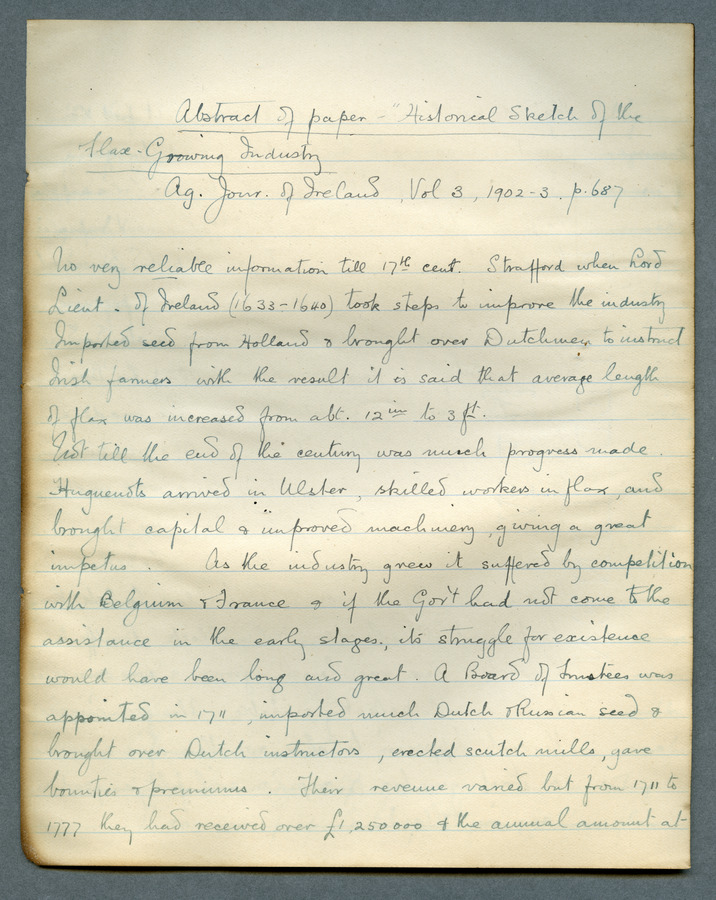 Abstract of paper - "Historical Sketch of the
Flax-Growing Industry
Ag. Jour. of Ireland, Vol 3, 1902-3. p. 687
No very reliable information till 17th cent. Strafford when Lord
Lieut. of Ireland (1633-1640) took steps to improve the industry
Imported seed from Holland & brought over Dutchmen to instruct
Irish farmers with the result it is said that average length
of flax was increased from abt. 12 in to 3 ft.
Not till the end of the century was much progress made.
Huguenots arrived in Ulster, skilled workers in flax, and
brought capital & improved machinery, giving a great
impetus. As the industry grew it suffered by competition
with Belgium & France & if the Gov't had not come to the
assistance in the early stages, its struggle for existence
would have been long and great. A Board of Trustees was
appointed in 1711, imported much Dutch & Russian seed &
brought over Dutch instructors, erected scutch mills, gave
bounties & premiums. Their revenue varied but from 1711 to
1777 they had received over £1,250000 & the annual amount at